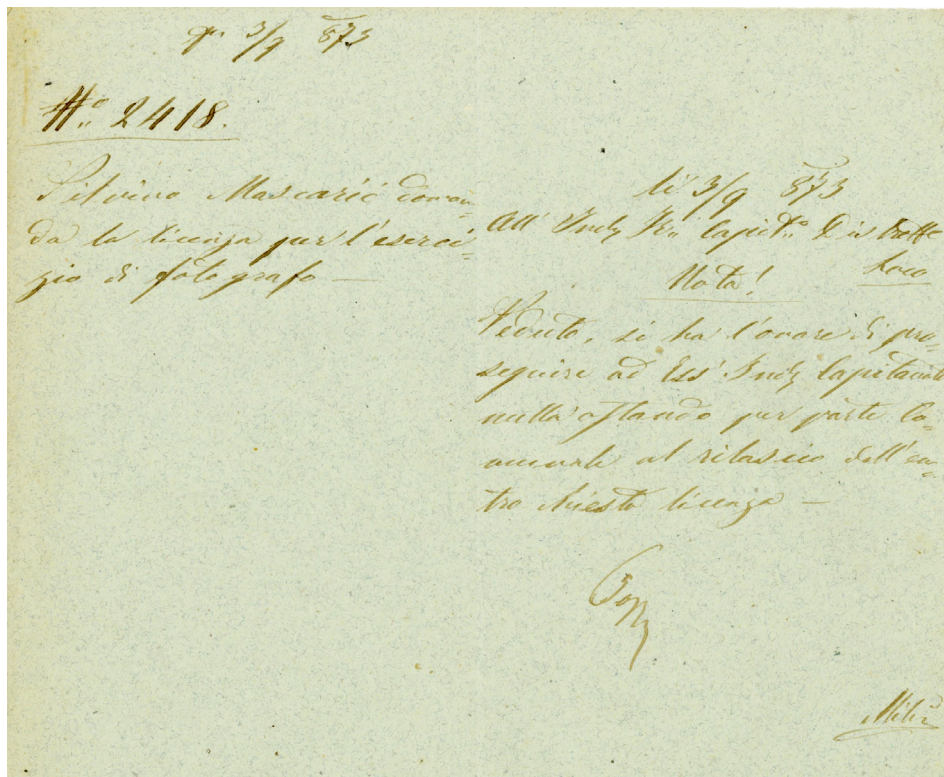 3/9 873
No 2418.
Silvino Mascarić doman=
da la licenza per l'eserci=
zio di fotografo —
li 3/9 873
All' Capit.o Distrette
Loco
Nota!
Veduto, si ha l'onore di pro=
seguire ad Ess' Capitanato
nulla ostando per parte Co=
munale al rilascio dell'en=
tro chiesta licenza —